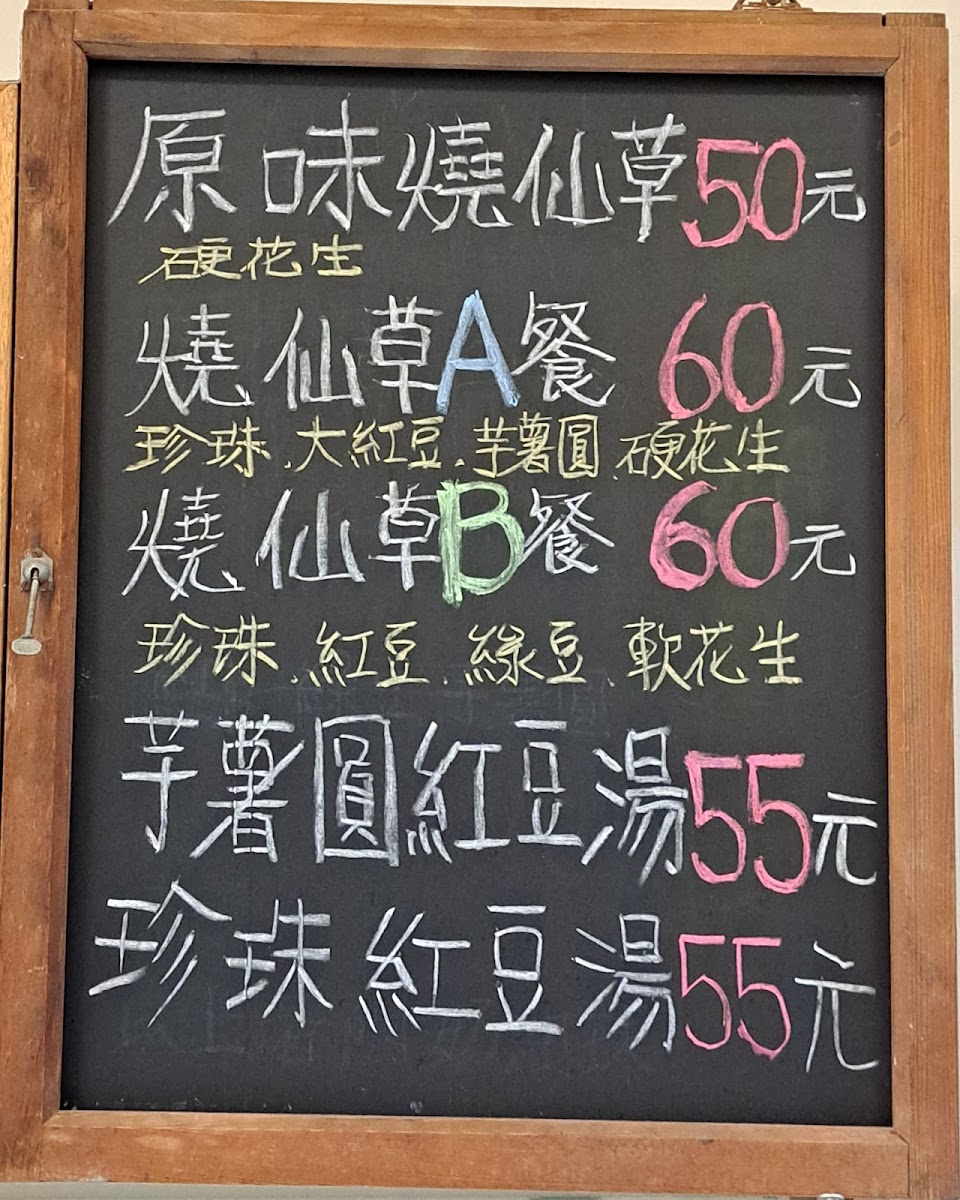 原味燒仙草50元
硬花生
燒仙草A餐 60元
珍珠.大紅豆.芋薯圓.硬花生
燒仙草B餐 60元
珍珠.紅豆.綠豆.軟花生
芋薯圓紅豆湯55元
珍珠紅豆湯55元